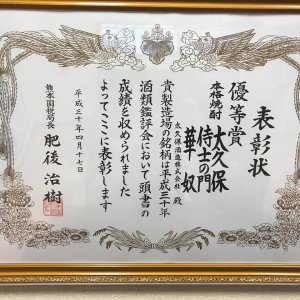 表彰状
優等賞
本格焼酎
太久保
侍士の門
華奴
太久保酒造株式会社 殿
貴製造場の銘柄は平成三十年
酒類鑑評会において頭書の
成績を収められました
よってここに表彰します
平成三十年四月十七日
熊本国税局長 肥後治樹